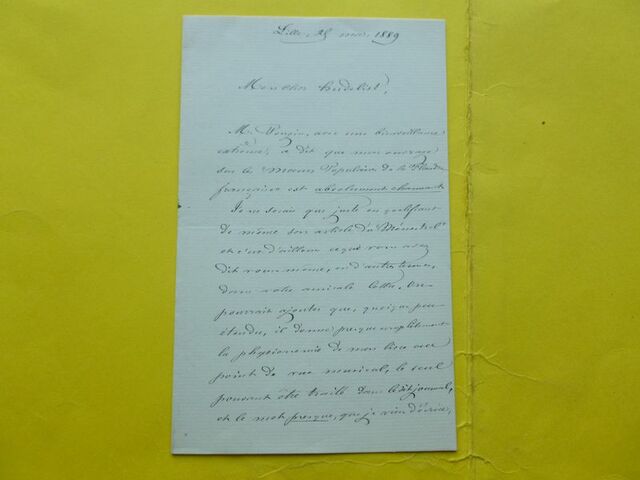 Lille, 25 mars 1889
Mon cher
M. Pougin, avec une bienveillance
extrême, a dit que mon ouvrage
sur les Mœurs Populaires de la Flandre
française est absolument charmant.
Je ne serais que juste en qualifiant
de même son article du Ménestrel
et c'est d'ailleurs ce que vous avez
dit vous-même, en d'autres termes,
dans votre amicale lettre. On
pourrait ajouter que, quoique peu
étendu, il donne presque complètement
la physionomie de mon livre au
point de vue musical, le seul
pouvant être traité dans ledit journal,
et le mot presque, que je viens d'écrire,